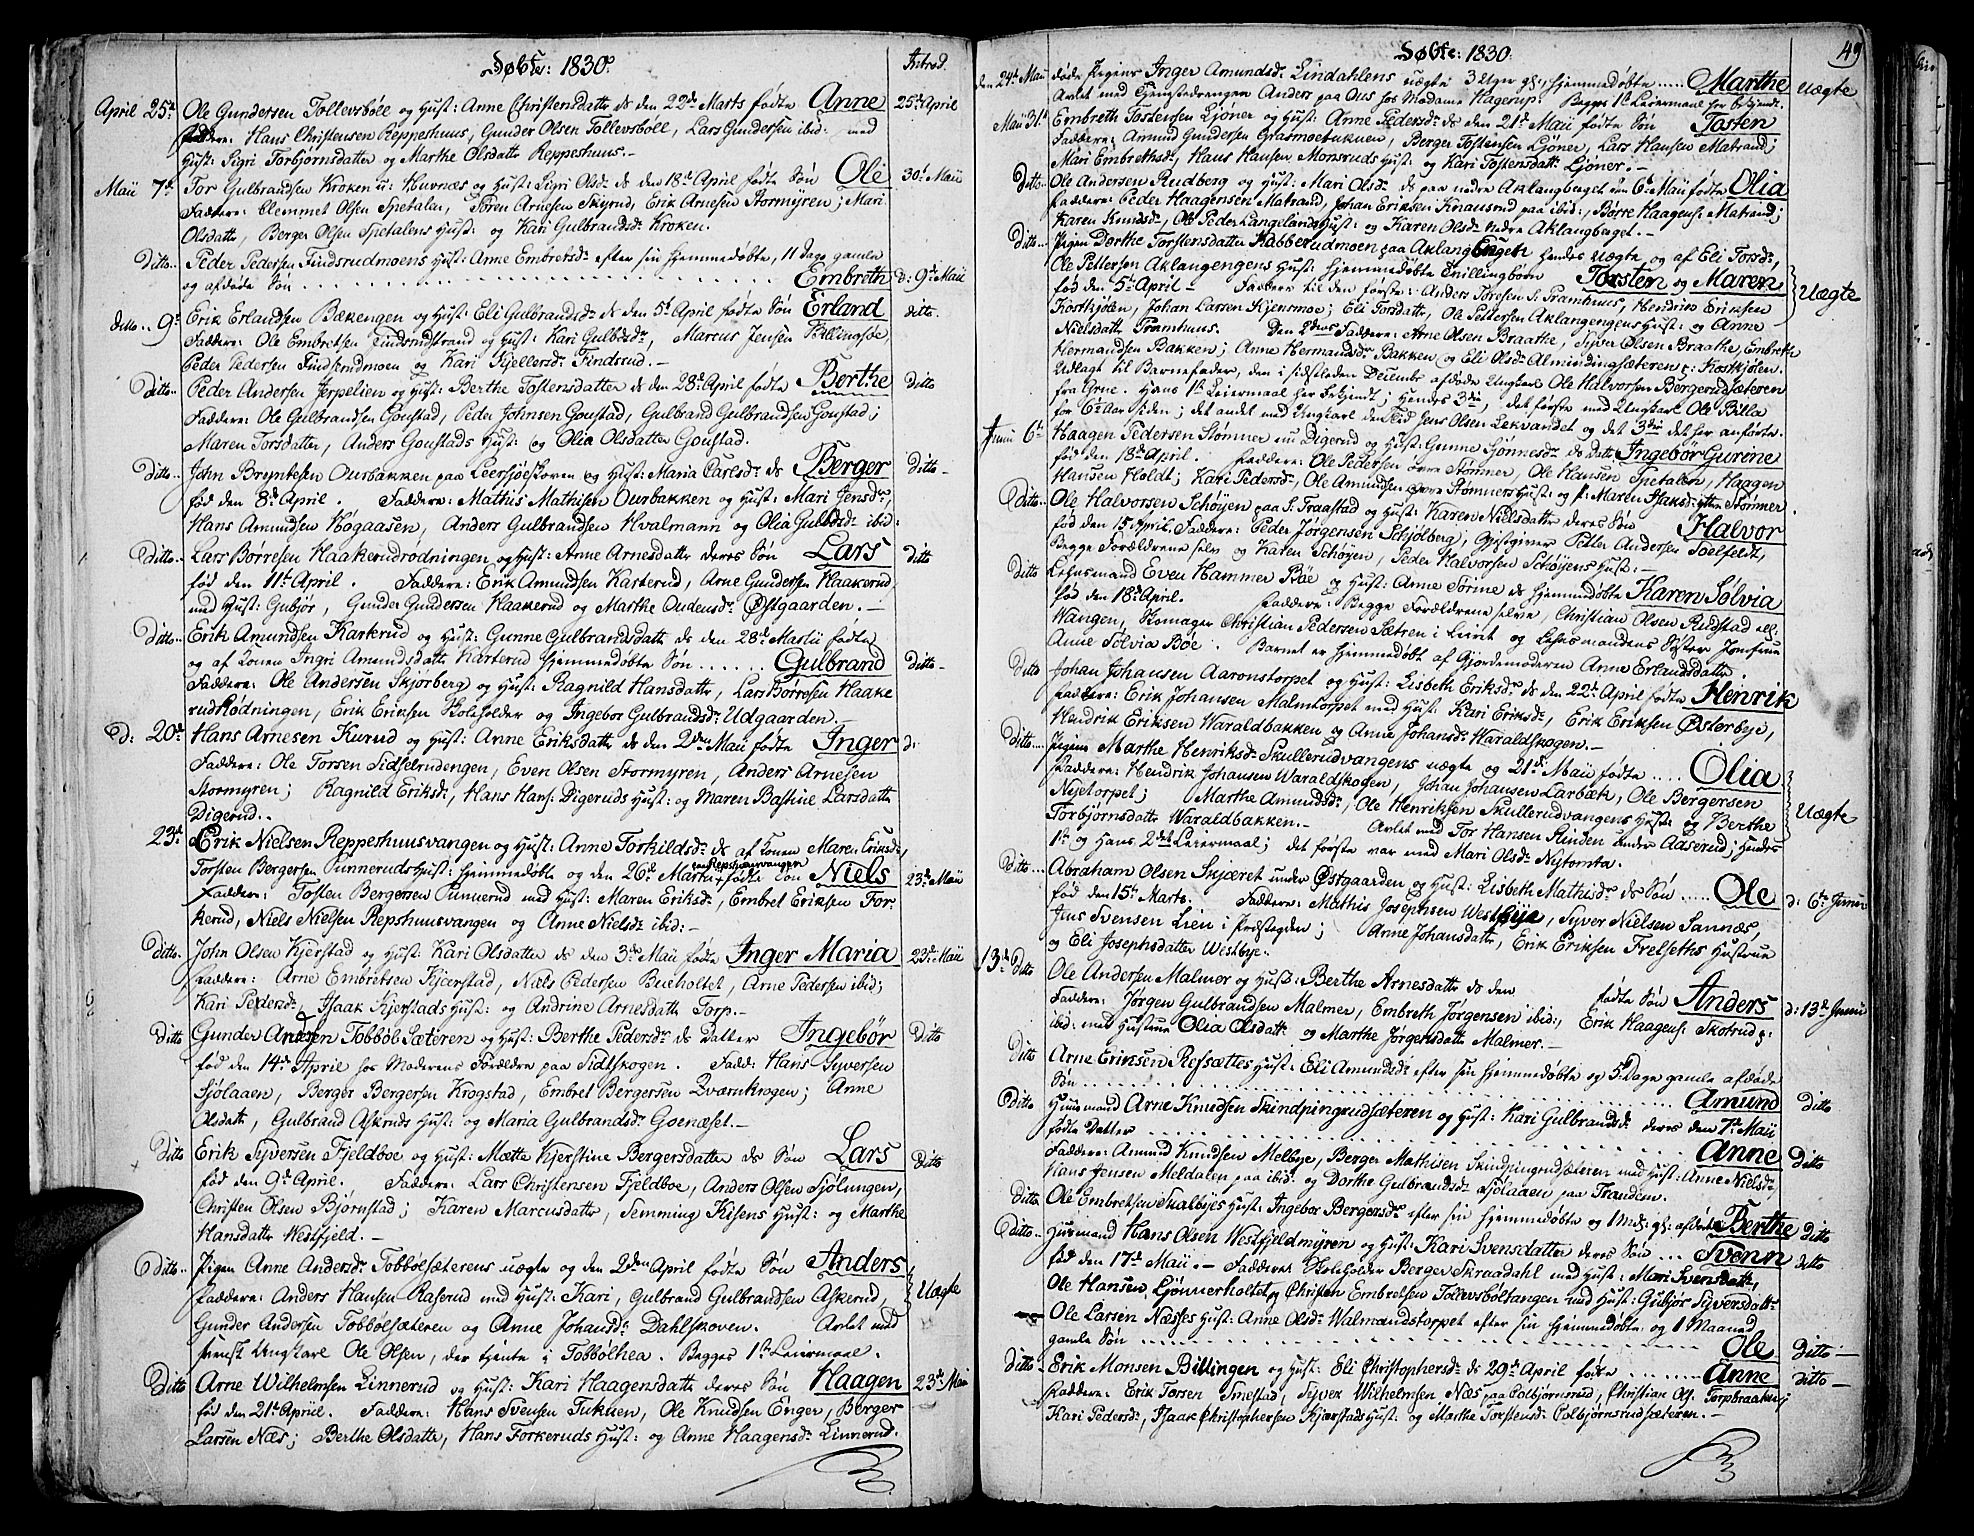 Døbte: 1830.
Introd.
April 25de Ole Gundersen Tollevsböle og Hust: Anne Christensdatte ds den 22de Marts fødte Anne 25de April
Faddere: Hans Christensen Reppeshuus, Gunder Olsen Tollevsböll, Lars Gundersen ibid: med
Hust: Sigri Torbjörnsdatter og Marthe Olsdatte Reppeshuus.-
Maii 7de Tor Gulbrandsen Kroken Hust: Sigri Olsdr ds den 18de April fødte Søn Ole 30te Maii
Faddere: Clemmet Olsen Spetalen, Sören Arnesen Skyrud, Erik Arnesen Stormyren; Mari
Olsdatte, Berger Olsen Spetalens Hust: og Kari Gulbrandsdr Kroken.
Ditto.. Peder Pedersen Findsrudmoens Hust: Anne Embretsdr efter sin hjemmedøbte, 11 Dage gamle
og afdøde Søn Embreth d: 9de Maii
ditto.. 9de Erik Erlandsen Bækengen og Hust: Eli Gulbrandsdr ds den 5te April fødte Søn Erland ditto.
Faddere: Ole Embretsen Findsrudstrand og Hust: Kari Gulbdsdr, Marcus Jensen
Peder Pedersen Findsrudmoen og Kari Kjellersdr Findsrud.-
Ditto.. Peder Andersen Jerpelien og Hust: Berthe Tostensdatter ds den 28de April fødte Berthe Ditto
Faddere: Ole Gulbrandsen Goustad, Peder Johnsen Goustad, Gulbrand Gulbrandsen Goustad;
Maren Torsdatter, Anders Goustads Hust: og Olia Olsdatter Goustad.
Ditto.. John Bryntesen Ourbakken paa Leersjøeskoven og Hust: Maria Carlsdr ds Berger Ditto-
fød den 8de April. Faddere: Mathis Mathisen Ourbakken og Hust: Mari Jensdr,
Hans Amundsen Høgaasen, Anders Gulbrandsen Kvalmann og Olia Gulbdsdr ibid:
Ditto.. Lars Börresen Haakerudrödningen og Hust: Anne Arnesdatte deres Søn Lars ditto
fød den 11te April. Faddere: Erik Amundsen Karterud, Arne Gundersen Haakerud,
med Hust: Gubjör, Gunder Gundersen Haakerud og Marthe Oudensdr Østgaarden.-
Ditto.. Erik Amundsen Karterud og Hust: Gunne Gulbrandsdatte ds den 28de Martii fødte
og af Konen Ingri Amundsdatte Karterud hjemmedøbte Søn Gulbrand ditto-
Faddere: Ole Andersen Skjörberg og Hust: Ragnild Hansdatte, Lars Börresen Haake
rudrödningen, Erik Eriksen Skoleholder og Ingebor Gulbrandsdr Udgaarden.-
D: 20de Hans Arnesen Kurud og Hust: Anne Eriksdatte ds den 2den Maii fødte Inger d:
Faddere: Ole Torsen Sidselrudengen, Even Olsen Stormyren, Anders Arnesen
Stormyren; Ragnild Eriksdr, Hans Hans: Digeruds Hust: og Maren Bastine Larsdatte
Digerud..
23de Erik Nielsen Reppeshuusvangen og Hust: Anne Torkildsdr ds af Konen Maren Eriksdr,
Torsten Bergersen Punneruds Hust: hjemmedøbte og den 26de Marts fødte Søn Niels 23de Maii
Faddere: Tosten Bergersen Punnerud med Hust: Maren Eriksdr, Embret Eriksen For-
kerud, Niels Nielsen Repshuusvangen og Anne Nielsdr ibid:-
Ditto. John Olsen Kjerstad og Hust: Kari Olsdatter ds den 3de Maii fødte Inger Maria 23de Maii
Faddere: Arne Embretsen Kjærstad, Niels Pedersen Bueholtet, Arne Pedersen ibid;
Kari Pedersdr, Isaak Kjerstads Hust: og Andrine Arnesdatte Torp.-
Ditto Gunder Andersen Tobböl Sæteren og Hust: Berthe Pedersdr ds Datter Ingebör Ditto
fød den 14de Aprie hos Moderens Forældre paa Sidtskogen. Fadd: Hans Syversen
Sjölaaen, Berger Bergersen Krogstad, Embret Bergersen Qværnkrogen; Anne
Olsdatte, Gulbrand Askruds Hust: og Maria Gulbrandsdr Goenæset.-
Ditto Erik Syversen Fjeldboe og Hust: Mætte Kjerstine Bergersdatter ds Søn Lars Ditto
fød den 9de April. Faddere: Lars Christensen Fjeldboe, Anders Olsen Sjölungen,
Christen Olsen Björnstad; Karen Marcusdatte, Semming Kisens Hust: og Marthe
Hansdatte Westfjeld.-
Ditto.. Pigen Anne Andersdr Tobbölsæterens uægte og den 2den April fødte Søn Anders Uægte
Faddere: Anders Hansen Raserud med Hust: Kari, Gulbrand Gulbrandsen Askerud,
Gunder Andersen Tobbölsæteren og Anne Johansdr Dahlskoven. Avlet med
svensk Ungkarl Ole Olsen, der tjente i Tobbölhea. Begges 1te Leiermaal.
Ditto Arne Wilhelmsen Linnerud og Hust: Kari Haagensdatte deres Søn Haagen 23de Maii
fød den 21de Apriil. Faddere: Hans Svensen Tukuen, Ole Knudsen Enger, Berger
Larsen Næs; Berthe Olsdatte, Hans Forkeruds Hust: og Anne Haagensdr Linnerud.
Døbte: 1830.
49
den 24de Maii døde Pigens Inger Amundsdr Lindahlens uægte 3 Uger gl: hjemmedøbte Marthe uægte
Avlet med Tjenestedrengen Anders paa Ous hos Madame Hagerup. Begges 1te Leiermaal her bekjendt.
Maii 31te Embreth Tostensen Ljöner og Hust: Anne Pedersdr ds den 21de Maii fødte Søn Tosten
Faddere: Amund Gundersen Grasmoetukuen, Berger Tostensen Ljöner, Lars Hansen Matrand;
Mari Embrethsdr, Hans Hansen Monsruds Hust: og Kari Tostensdatt: Ljöner.-
Ditto. Ole Andersen Rudberg og Hust: Mari Olsdr ds paa nedre Aklangbaget den 6te Maii fødte Olia
Faddere: Peder Haagensen Matrand, Johan Eriksen Knausrud paa ibid:, Börre Haagens: Matrand;
Karen Knudsdr, Ole Peder Langelands Hust: og Karen Olsdr nedre Aklangbaget.-
Ditto.. Pigen Dorthe Torstensdatter Kabberudmoen paa Aklang Enget hendes Uægte og af Eli Torsdr,
Ole Pettersen Aklangengens Hust: hjemmedøbte Tvillingbørn Torsten og Maren Uægte
fød den 5te April- Faddere til den første: Anders Toresen S: Tramhuus, Hendrick Eriksen
Kostkjölen, Johan Larsen Kjensmoe; Eli Torsdatte, Ole Pettersen Aklangengens Hust: og Anne
Nielsdatte Tramhuus. Den 2dens Faddere: Arne Olsen Braathe, Syver Olsen Braathe, Embreth
Hermandsen Bakken; Anne Hermandsdr Bakken og Eli Olsdr Almindingsæteren S: Kostkjölen.
Udlagt til Barnefader, den i sidstleden Decembr afdøde Ungkarl Ole Halvorsen Bergerudsæteren
fra Grue. Hans 1te Leiermaal her bekjendt; Hendes 3die, det første med Ungkarl Ole Billa
for 6te Aar siden; det andet med Ungkarl Jens Olsen Lekvandet og det 3die det her anførte.
Junii 6te Haagen Pedersen Stömner nu Digerud og Hust: Gunne Sjönnesdr ds Datte Ingebor Gurine
fød den 18de April. Faddere: Ole Pedersen övre Stömner, Ole Hansen Spetalen, Haagen
Hansen Holdt; Kari Pedersdr, Ole Amundsen övre Stömners Hust: og P: Maren Isaksdr Stömner.
Ditto.. Ole Halvorsen Schöyen paa S. Fraastad og Hust: Karen Nielsdatte deres Søn Halvor
fød den 15 April. Faddere: Peder Jörgensen Schjölberg, Gjæstgiver Petter Andersen Toelfeldt,
Begge Forældrene selv og Karen Schöyen, Peder Halvorsen Schöyens Hust:-
ditto Lehnsmand Even Hammer Böe og Hust: Anne Torine ds hjemmedøbte Karen Solvia
fød den 18de April. Faddere: Begge Forældrene selve, Christian Olsen Rudstad
Wangen, Skomager Christian Pedersen Sætren i Leirit og Lehnsmandens Søster Jomfrue
Anne Solvia Böe. Barnet er hjemmedøbt af Gjordemoderen Anne Erlandsdatte.
Ditto Johan Johansen Aaronstorpet og Hust: Lisbeth Eriksdr ds den 22de April fødte Henrik
Faddere: Erik Johansen Malmtorpet med Hust: Kari Eriksdr, Erik Eriksen Østerbye,
Hendrik Eriksen Waraldbakken og Anne Johansdr Waraldskogen.-
Ditto.. Pigens Marthe Henriksdr Skullerudvangens uægte og 21de Maii fødte Olia Uægte
Faddere: Hendrik Johansen Waraldskogen, Johan Johansen Larbæk, Ole Bergersen
Nyetorpet; Marthe Amundsdr, Ole Henriksen Skullerudvangens Hust: og Berthe
Torbjörnsdatte Waraldbakken.- Avlet med Tor Hansen Rinden under Aaserud; Hendes
1te og Hans 2det Leiermaal; det første var med Mari Olsdr Nytomta.
Ditto... Abraham Olsen Skjæret under Østgaarden og Hust: Lisbeth Mathisdr ds Søn Ole d: 6te Junii
fød den 15de Marts. Faddere: Mathis Josephsen Westbye, Syver Nielsen Sannæs,
Jens Svensen Lien i Præstegden; Anne Johansdatte, Erik Eriksen Frelseths Hustrue
og Eli Josephsdatter Westbye.
13de Ditto Ole Andersen Malmer og Hust: Berthe Arnesdatte ds den fødte Søn Anders d: 13de Junii
Faddere: Jörgen Gulbrandsen Malmer, Embreth Jörgensen ibid:, Erik Haagens: Skotrud;
ibid: med Hustrue Olia Olsdatt: og Marthe Jörgensdatte Malmer.-
Ditto Arne Eriksen Refsættes Hust: Eli Amundsdr efter sin hjemmedøbte og 5 Dage gamle afdøde
Søn Amund
Ditto Huusmand Arne Knudsen Skindpingrudsæteren og Hust: Kari Gulbrandsdr deres den 7de Maii Ditto
fødte Datter Anne Ditto
Faddere: Amund Knudsen Melbye, Berger Mathisen Skindpingrudsæteren med Hust: Anne Nielsdr,
Hans Jensen Meldalen paa ibid: og Dorthe Gulbrandsdr Sjølaaen paa Tranden.
Ditto Ole Embretsen Skalbyes Hust: Ingebor Bergersdr efter sin hjemmedøbte og 1 Md: gl: afdøde Berthe Ditto
Ditto.. Huusmand Hans Olsen Westfjeldmyren og Hust: Kari Svensdatter deres Søn Svenn ditto
fød den 17de Maii.- Faddere: Skoleholder Berger Skraadahl med Hust: Mari Svensdatte,
Ole Hansen Ljönnerholtet og Christen Embretsen Tollevsböltangen med Hust: Gubjör Syversdatte
Ole Larsen Næsses Hust: Anne Olsdr Walmandstorpet efter sin hjemmedøbte og 1 Maaned
gamle Søn Ole Ditto-
Ditto Erik Monsen Billingen og Hust: Eli Christophersdr ds 29de April fødte Anne ditto-
Faddere: Erik Torsen Smestad, Syver Wilhelmsen Næs paa Colbjörnsrud, Christian Ols: Torpbraaten;
Kari Pedersdr, Isaak Christophersen Kjærstads Hust: og Marthe Torstensdr Colbjörnsrudsæteren.-